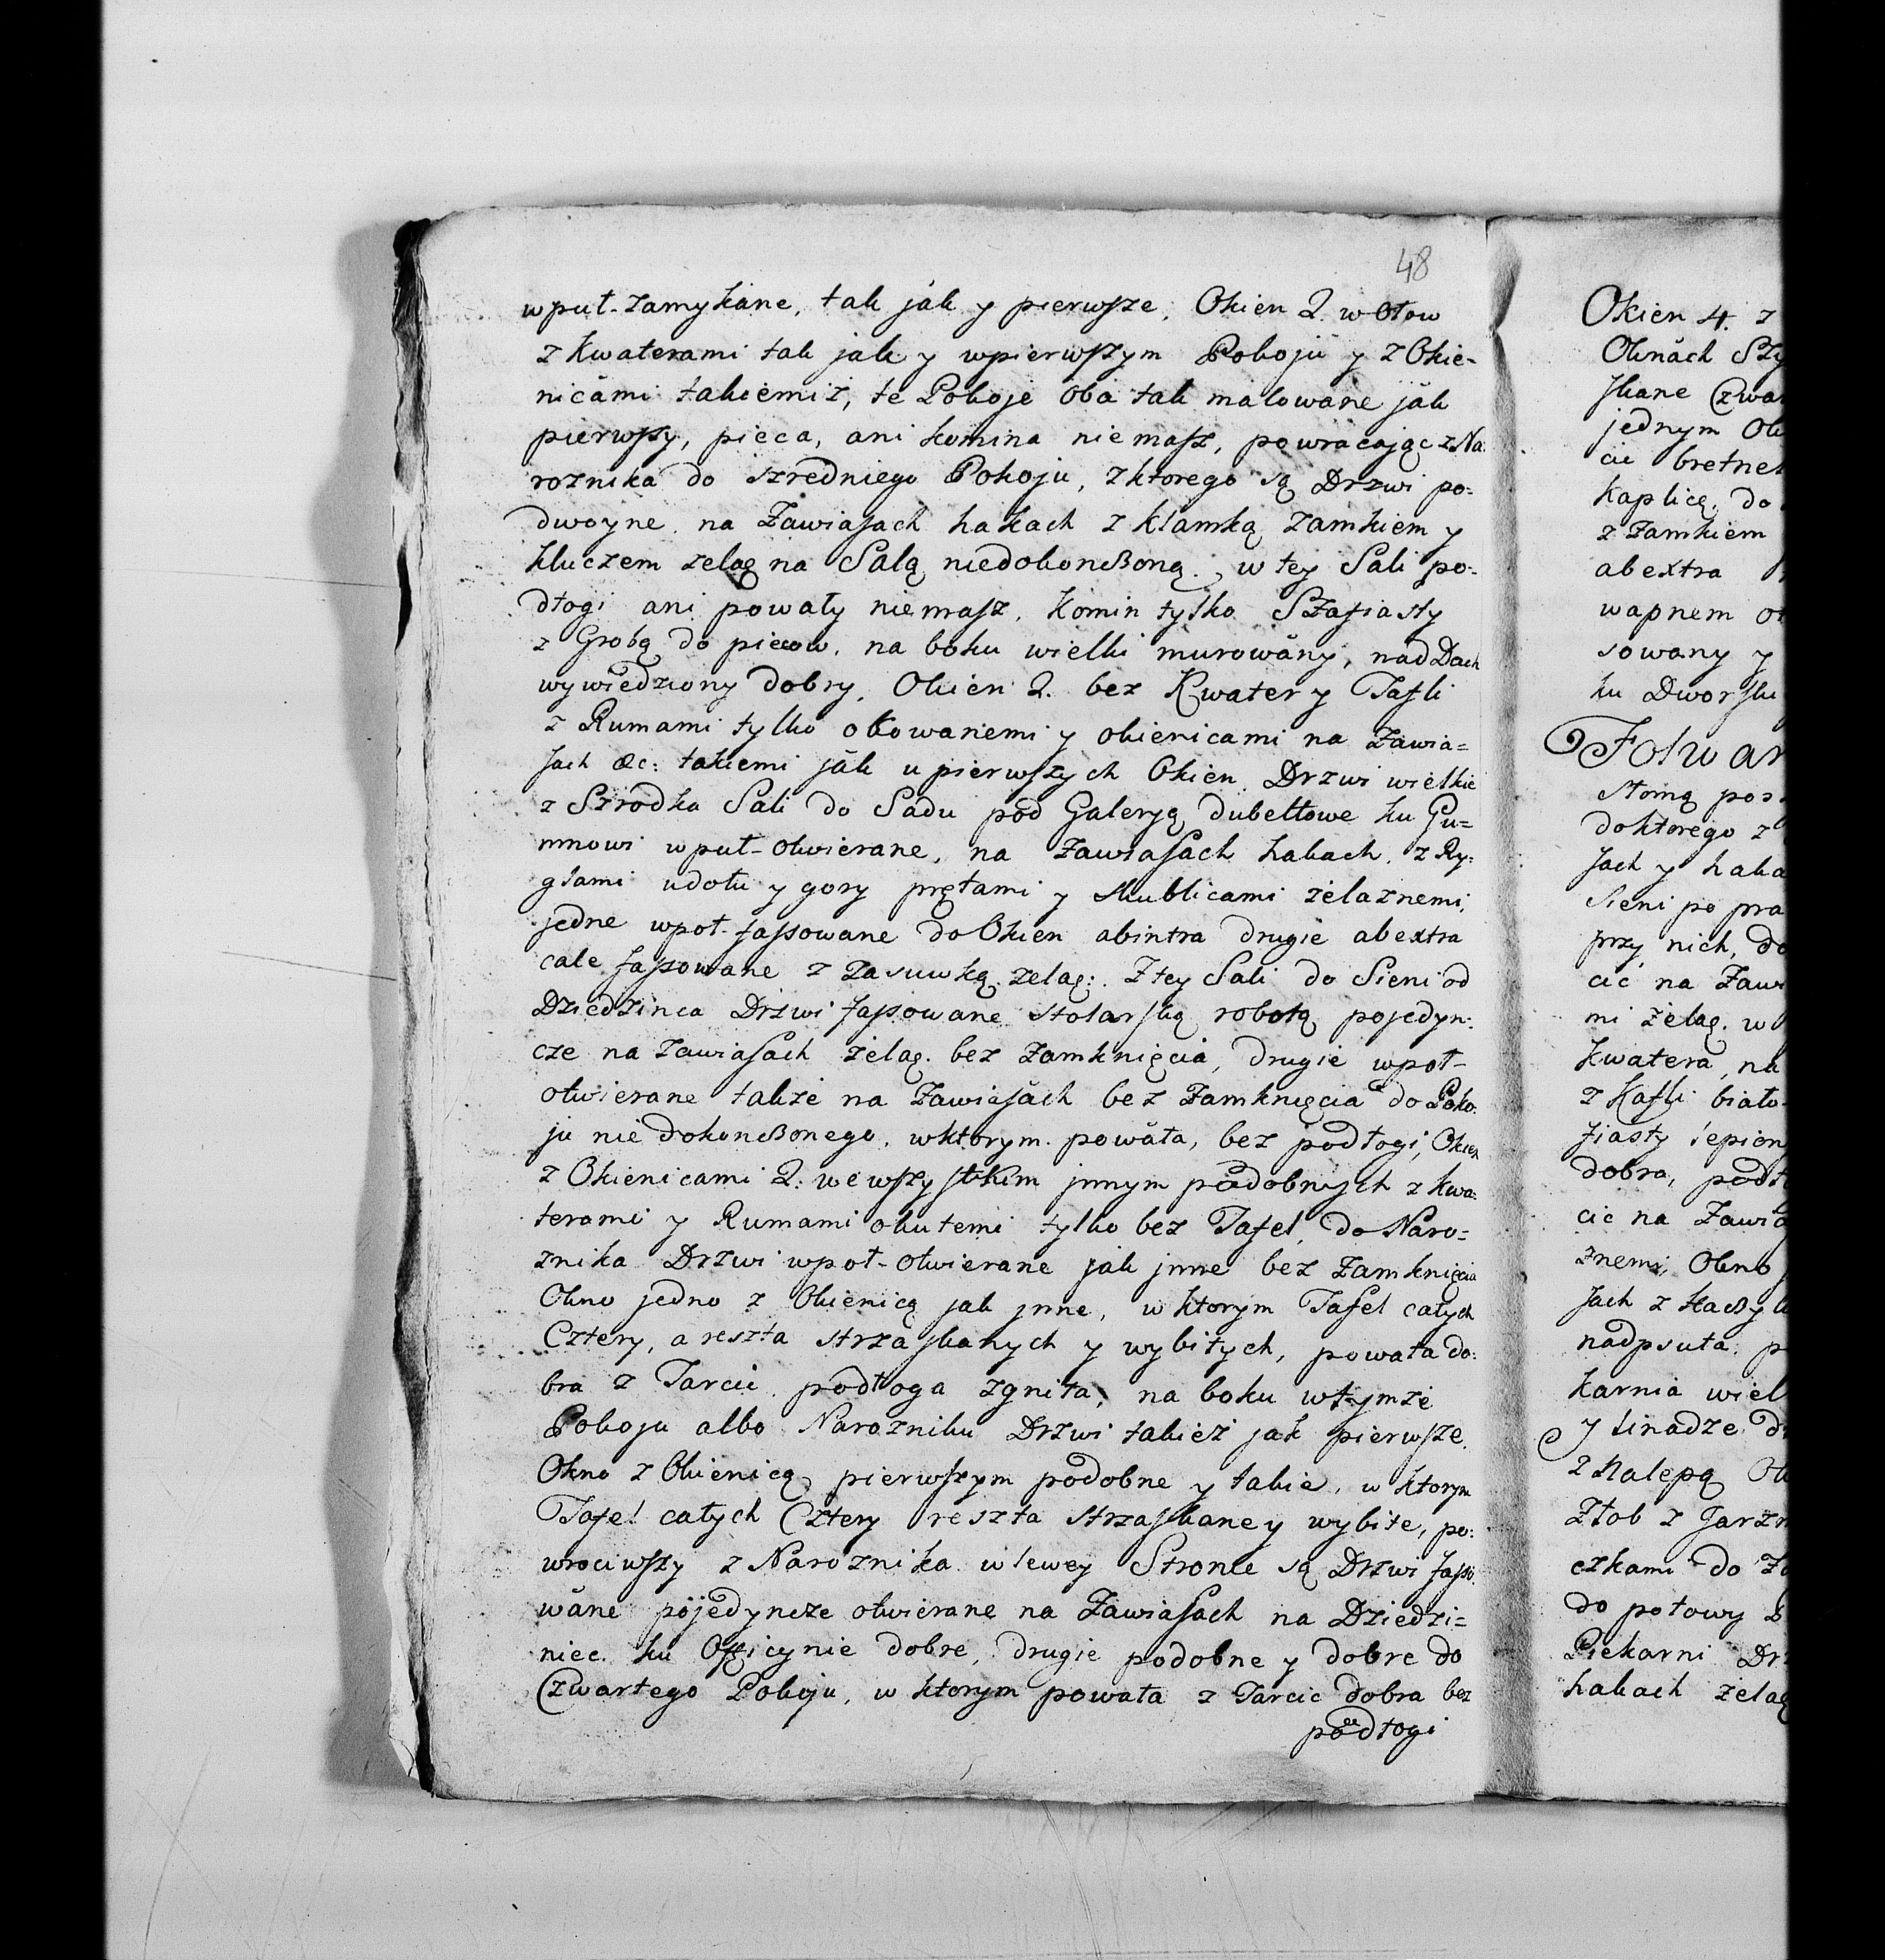 48
wpuł-zamykane, tak jak y pierwsze, Okien 2. w Ołow
z Kwaterami tak jak y wpierwszym Pokoju y z Okie-
nicami takiemiż, te Pokoje oba tak malowane jak
pierwszy, pieca, ani komina niemasz, powracając z Na-
roznika do szredniego Pokoju, z ktorego są Drzwi po-
dwoyne na Zawiasach hakach z klamką zamkiem y
kluczem zelaę na Salą niedokonczoną, w tey Sali po-
dłogi ani powały niemasz, komin tylko Szafiasty
z Grobą do piecow, na boku wielki murowany, nad Dach
wywiedziony dobry, Okien 2. bez Kwater y Tafli
z Rumami tylko okowanemi y okienicami na Zawia=
sach &c: takiemi jak u pierwszych Okien. Drzwi wielkie
z Szrodka Sali do Sadu pod Galeryą dubeltowe ku Gu=
mnowi wpuł-otwierane, na Zawiasach hakach, z Ry-
glami udołu y gory prętami y skublicami żelaznemi,
jedne wpoł-fassowane do Okien abintra drugie abextra
cale fassowane z Zasuwką zelaę: Z tey Sali do Sieni od
Dziedzinca Drzwi fassowane stolarską robotą pojedyn-
cze na zawiasach żelaę. bez zamknięcia, drugie wpoł-
otwierane także na Zawiasach bez Zamknięcia do Poko-
ju nie dokonczonego, wktorym powała, bez podłogi, Okien
z Okienicami 2: we wszystkim jnnym podobnych z kwa-
terami y Rumami okutemi tylko bez Tafel, do Naro=
znika Drzwi wpoł-otwierane jak jnne bez Zamknięcia
Okno jedno z Okienicą jak jnne, w ktorym Tafel całych
Cztery, a reszta strzaskanych y wybitych, powała do-
bra z Tarcic podłoga zgniła, na boku wtymże
Pokoju albo Narozniku Drzwi takież jak pierwsze.
Okno z Okienicą pierwszym podobne y takie, w ktorym
Tafel całych Cztery reszta strzaskane y wybite, po-
wrociwszy z Naroznika w lewey Stronie są Drzwi fasso-
wane pojedyncze otwierane na Zawiasach na Dziedzi=
niec ku Officynie dobre, drugie podobne y dobre do
Czwartego Pokoju, w ktorym powała z Tarcic dobra bez
podłogi
Okien 4. z
Oknach Szy
skane Czwa
jednym Ok
cic bretne
kaplicę, do
z Zamkiem
abextra
wapnem o
sowany y
ku Dworsk
Folwar
słomą pos
doktorego z
sach y haka
Sieni po pra
przy nich, do
cic na Zawi
mi żelaę. w
kwatera, na
z Kafli biało
fiasty lepion
dobra, podł
cic na Zawia
znemi, Okno
sach z Haczyk
nadpsuta, p
karnia wiel
y linadze d
z Nalepą Ok
Złob z Jarzm
czkami do Za
do połowy
Piekarni Dr
hakach zelaę